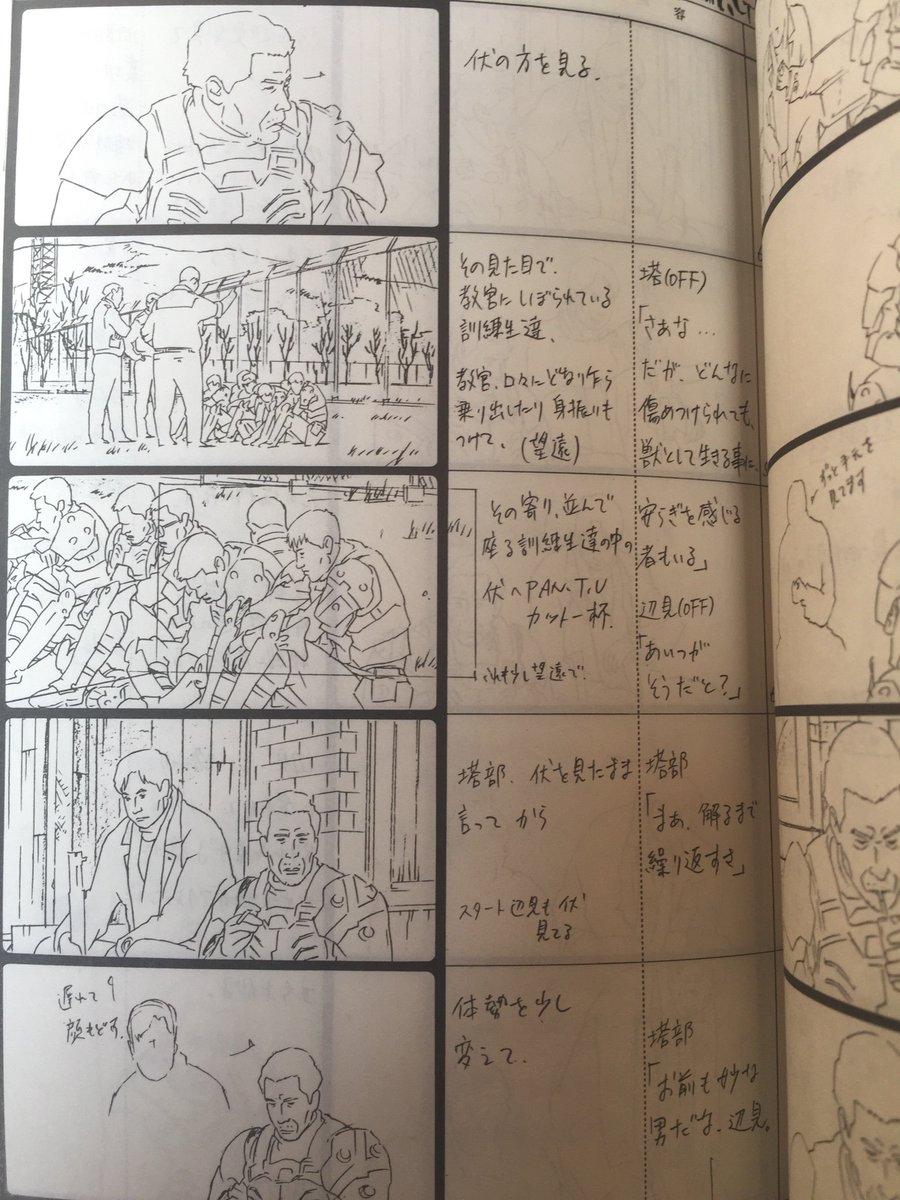 容
伏の方を見る.
その見た目で.
教官にしぼられている
訓練生達.
教官、口々にどなり乍ら
乗り出したり身振りも
つけて.
(望遠)
塔(OFF)
「さあな…
だが、どんなに
傷めつけられても、
獣として生きる事に、
その寄り、並んで
座る訓練生達の中の
伏へPAN.T.U
カット一杯.
これも少し望遠で.
安らぎを感じる
者もいる」
辺見(OFF)
「あいつが
そうだと?」
塔部、伏を見たまま
言ってから
スタート辺見も伏
見てる
塔部
「まあ、解るまで
繰り返すさ」
遅れて
顔もどす.
体勢を少し
変えて.
塔部
「お前も妙な
男だな、辺見。
見てます